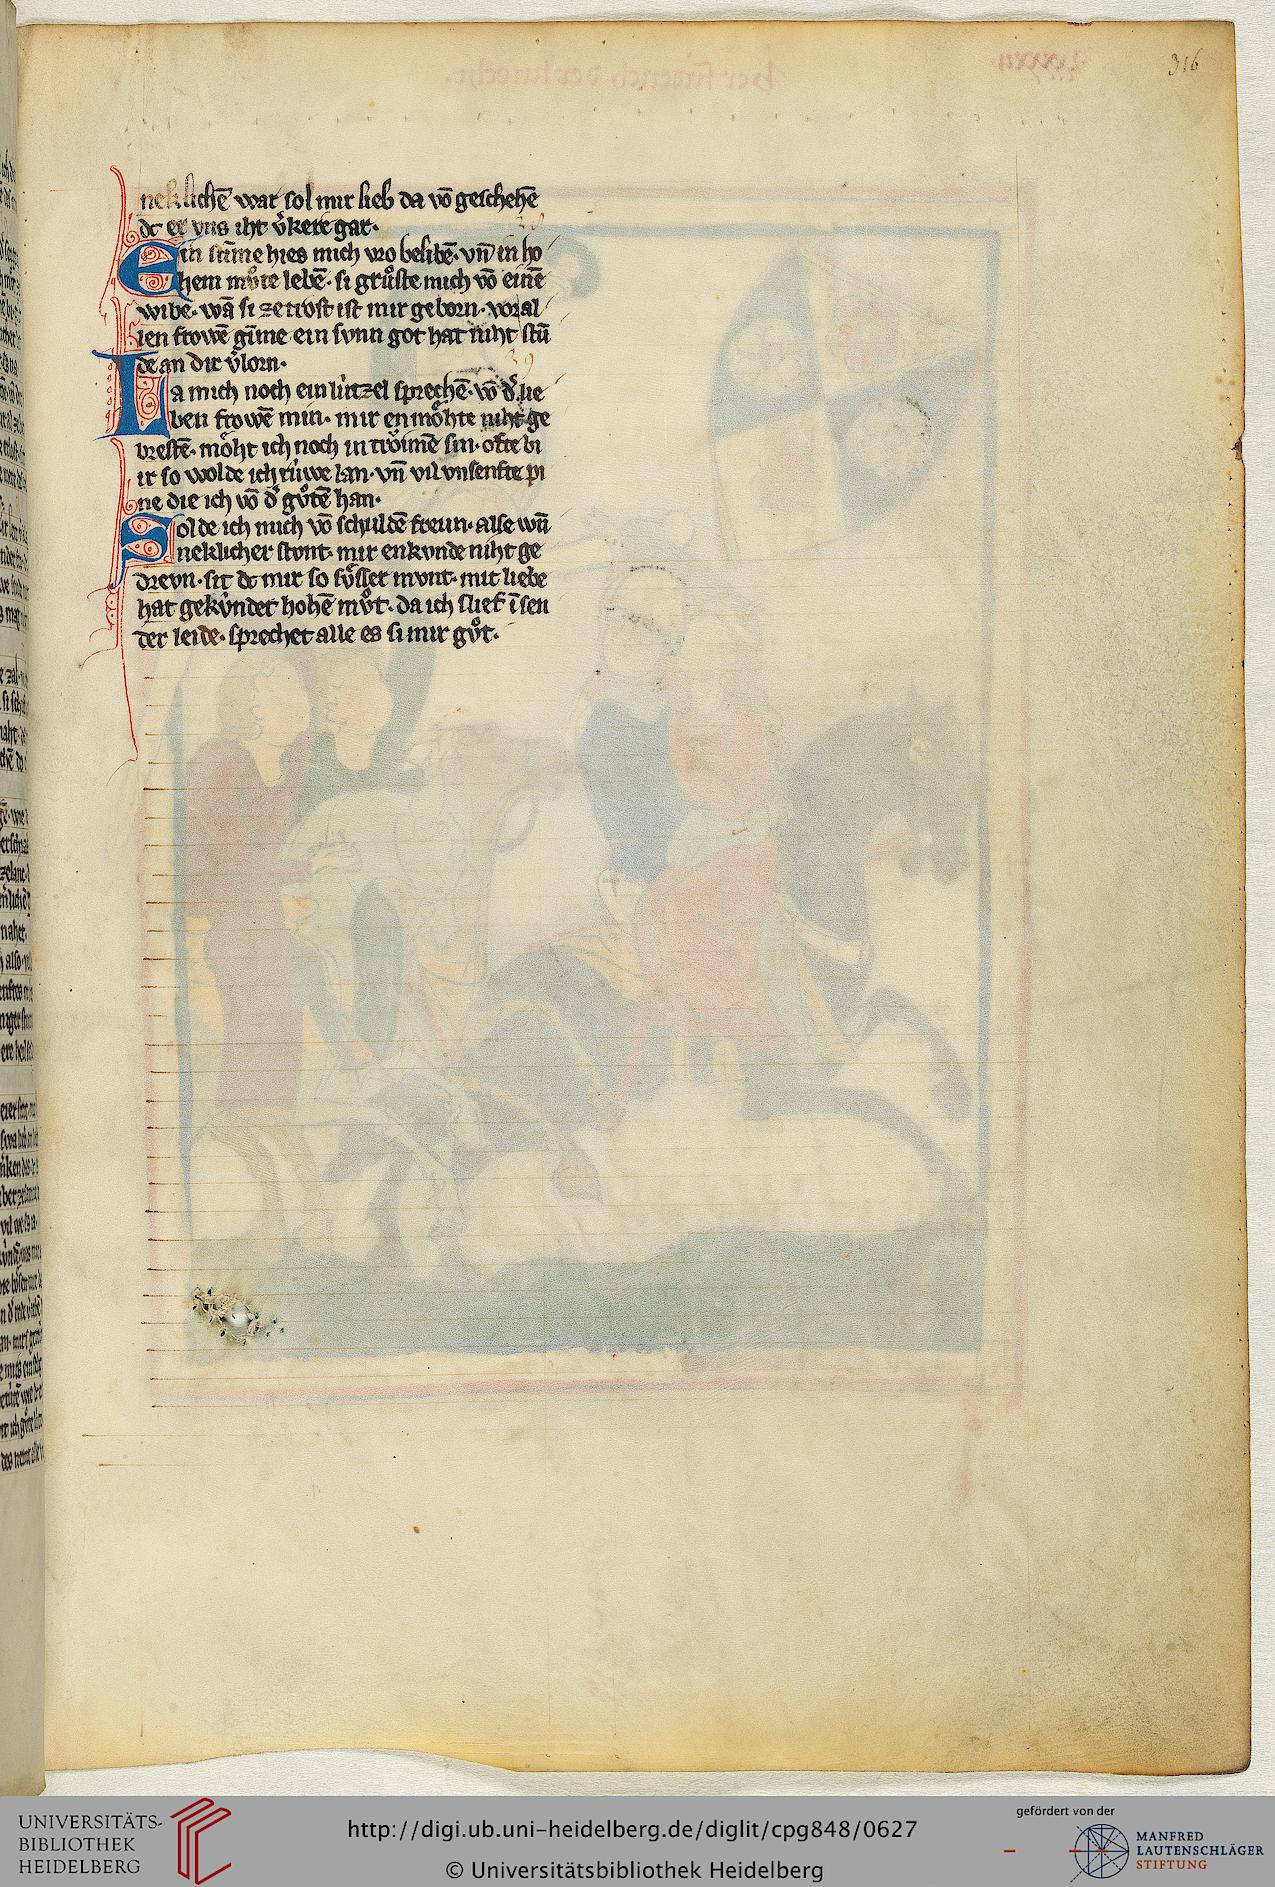 316
neklichē war sol mir lieb da vō geschehē
dc er vns iht v̾kere gar·
Ein stīme hies mich vro belibē· vn̄ in ho
hem mvͦte lebē· si grvͦste mich vō einē
wibe· wā si ze trost ist mir geborn· vor al
len frowē gīme ein svnn got hat niht stū
de an dir v̾lorn·
La mich noch ein lützel sprechē· vō d̾ lie
ben frowē min· mir en moͤhte niht ge
brestē· moͤht ich noch in troͮime sin· ofte bi
ir so wolde ich rüwe lan· vn̄ vil vnsenfte pi
ne die ich vō d̾ gvͦtē han·
Solde ich mich vō schuldē freun· alse wū
neklicher stvnt· mir enkvnde niht ge
drevn· sit dc mir so svͤsser mvnt· mit liebe
hat gekv́ndet hohē mvͦt· da ich slief ī sen
der leide· sprechet alle es si mir gvͦt·
UNIVERSITÄTS-
BIBLIOTHEK
HEIDELBERG
http://digi.ub.uni-heidelberg.de/diglit/cpg848/0627
© Universitätsbibliothek Heidelberg
gefördert von der
MANFRED
LAUTENSCHLÄGER
STIFTUNG